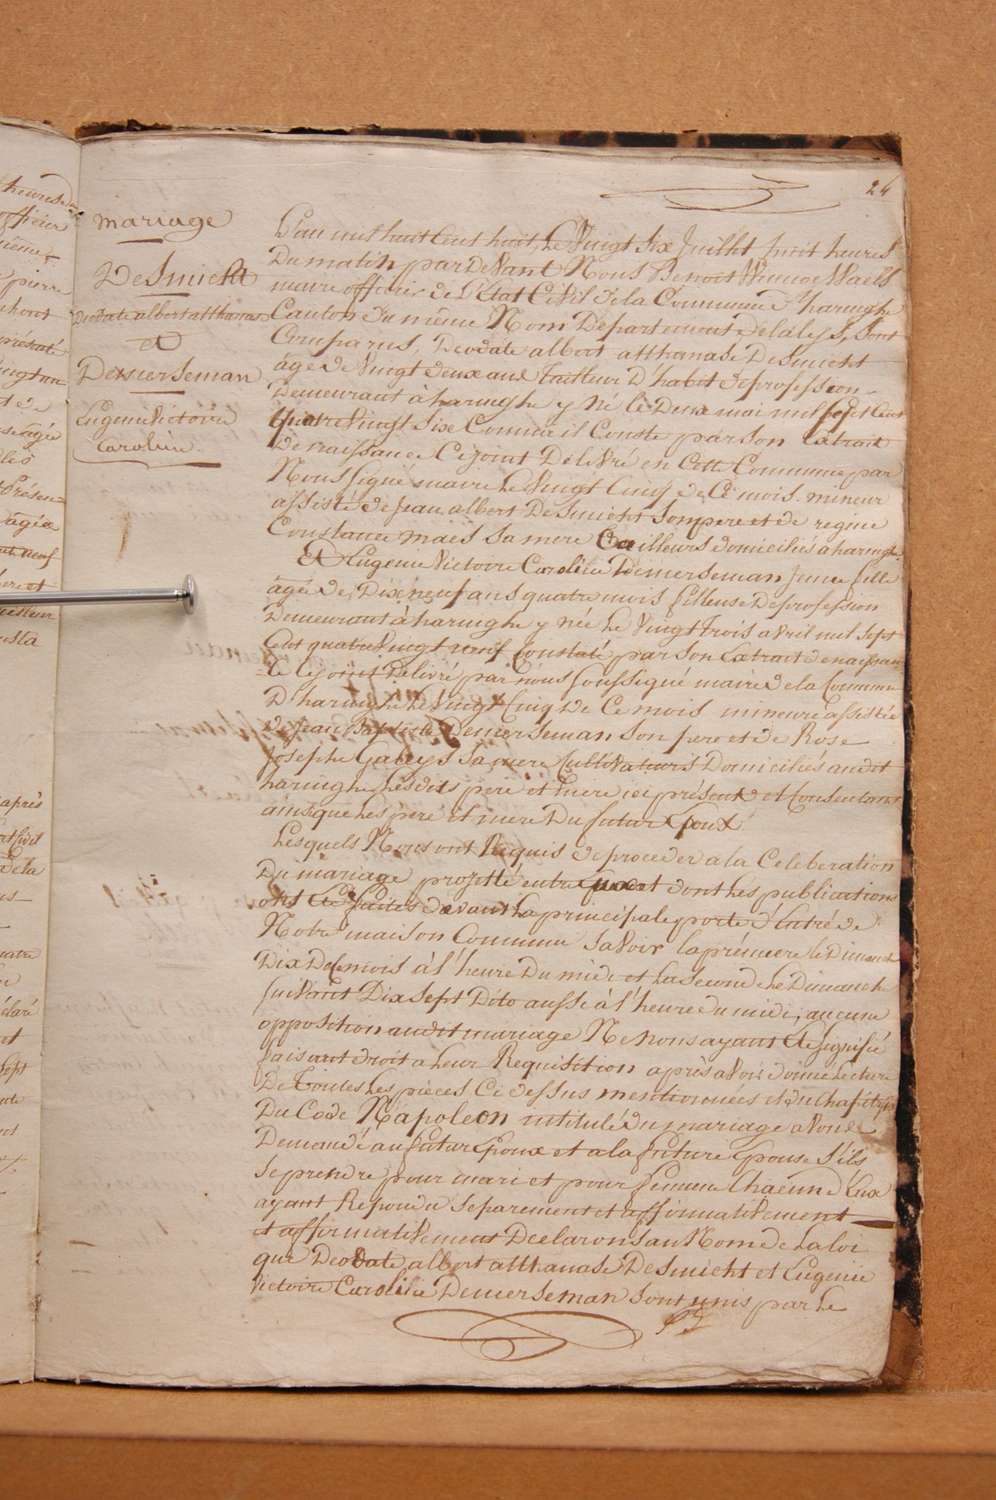 24
mariage
DeSmicht
Deodate albert atthanase
et
Demerseman
Eugenie Victoire
Caroline
L'an mil huit Cens huit, le Vingt Six Juillet huit heures
Du matin par Devant Nous Benoit Waels
maire officier de L'Etat Civil de la Commune d'haringhe
Canton du même Nom Departement de la lys, Sont
Comparus, Deodate albert atthanase DeSmicht
agé de Vingt deux ans tailleur D'habit de profession
Demeurant à haringhe y Né le Deux mai mil Sept Cent
quatre Vingt Six Comme il Conste par Son Extrait
de naissance Cijoint Délivré en Cette Commune par
Nous Signé maire le Vingt Cinq de Ce mois. mineur
assisté de Jean albert DeSmicht Son pere et de regine
Constance maës Sa mere domiciliés a haringhe
Et Eugenie Victoire Caroline Demerseman Jeune fille
agée de Dix neuf ans quatre mois fileuse De profession
Demeurant à haringhe y née le Vingt trois avril mil Sept
Cent quatre Vingt neuf Constaté par Son Extrait de naissan
Ce Cijoint Délivré par nous Soussigné maire de la Commune
D'haringhe le Vingt Cinq de Ce mois mineure assistée
de Jean Baptiste Demerseman Son pere et de Rose
Josephe Galeys Sa mere Cultivateurs Domiciliés audit
haringhe Lesdits pere et mere ici présent et Consentant
ainsi que Les père et mere Du futur Epoux
Lesquels Nous ont Requis de proceder a la Celeberation
Du mariage projetté entre eux et dont Les publications
ont été faites devant La principale porte d'Entré de
Notre maison Commune Savoir la prémiere le Dimanche
Dix De Ce mois à l'heure Du midi et La Seconde Le Dimanche
Suivant Dix Sept Dito aussi à l'heure du midi, aucune
opposition audit mariage Ne nous ayant été Signifié
faisant droit a Leur Requisition après avoir donné Lecture
De toutes Les pièces Ci dessus mentionnées et du Chapitre
Du Code Napoleon intitulé du mariage avons
Demandé au futur Epoux et a la future Epouse S'ils
Se prendre pour mari et pour femme Chacun d'Eux
ayant Repondu Séparement et affirmativement
et affirmativement Declarons au Nom de La loi
que Deodate albert atthanase DeSmicht et Eugenie
Victoire Caroline Demerseman Sont unis par Le